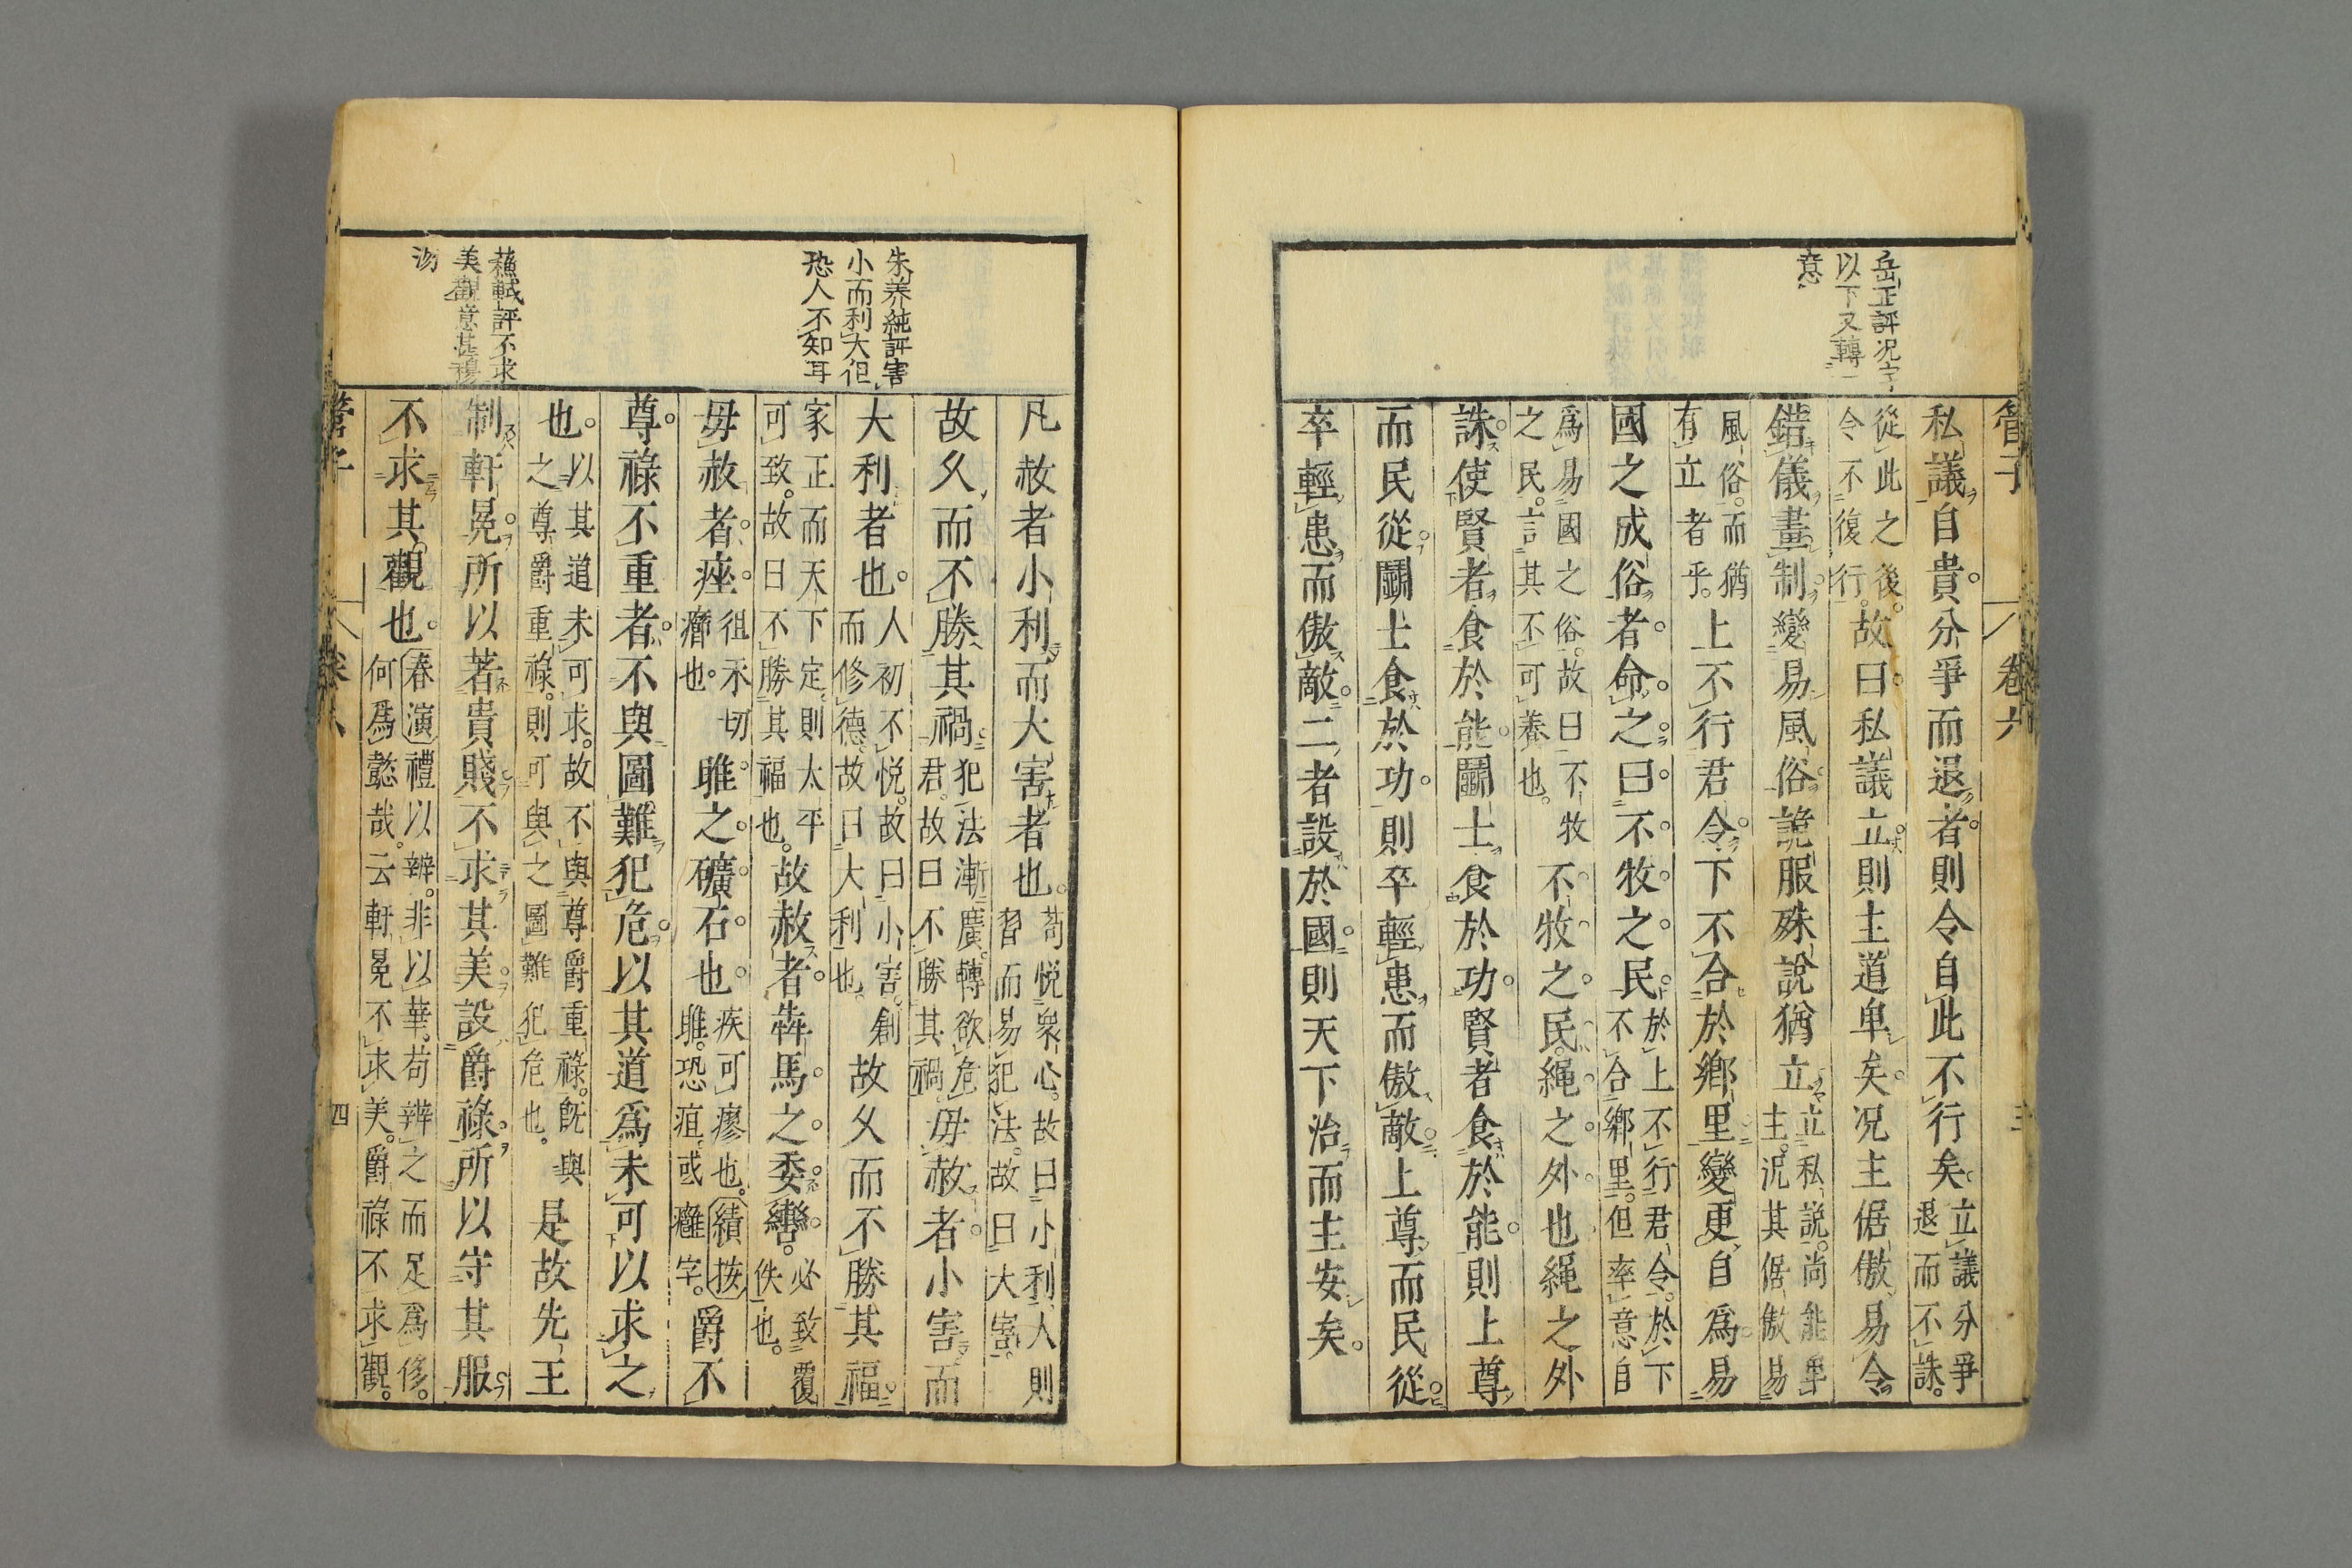 管子
卷六
三
岳正評况字
以下又轉一
意
私議自貴分爭而退者則令自此不行矣立議分爭退而不誅
從此之後令不復行故曰私議立則主道卑矣况主倨傲易令
錯儀畫制變易風俗詭服殊說猶立立私說尚能卑主況其倨傲易
風俗而猶有立者乎上不行君令下不合於鄉里變更自爲易
國之成俗者命之曰不牧之民於上不行君令於下不合鄉里但率意自
爲易國之俗故曰不牧之民言其不可養也不牧之民繩之外也繩之外
誅使賢者食於能鬭士食於功賢者食於能則上尊
而民從鬭士食於功則卒輕患而傲敵上尊而民從
卒輕患而傲敵二者設於國則天下治而主安矣
朱養純評害
小而利大但
恐人不知耳
蘇軾評不求
美觀意甚穆
沕
凡赦者小利而大害者也苟悅衆心故曰小利人則習而易犯法故曰大害
故久而不勝其禍犯法漸廣轉欲危君故曰不勝其禍毋赦者小害而
大利者也人初不悅故曰小害創而修德故曰大利也故久而不勝其福
家正而天下定則太平可致故曰不勝其福也故赦者犇馬之委轡必致覆佚也
毋赦者痤徂禾切癤也雎之礦石也疾可瘳也雎恐疽或癰字績按爵不
尊祿不重者不與圖難犯危以其道爲未可以求之
也以其道未可求故不與尊爵重祿旣與之尊爵重祿則可與之圖難犯危也是故先王
制軒冕所以著貴賤不求其美設爵祿所以守其服
不求其觀也春演禮以辨非以華苟辨之而足爲修何爲懿哉云軒冕不求美爵祿不求觀
管子
四